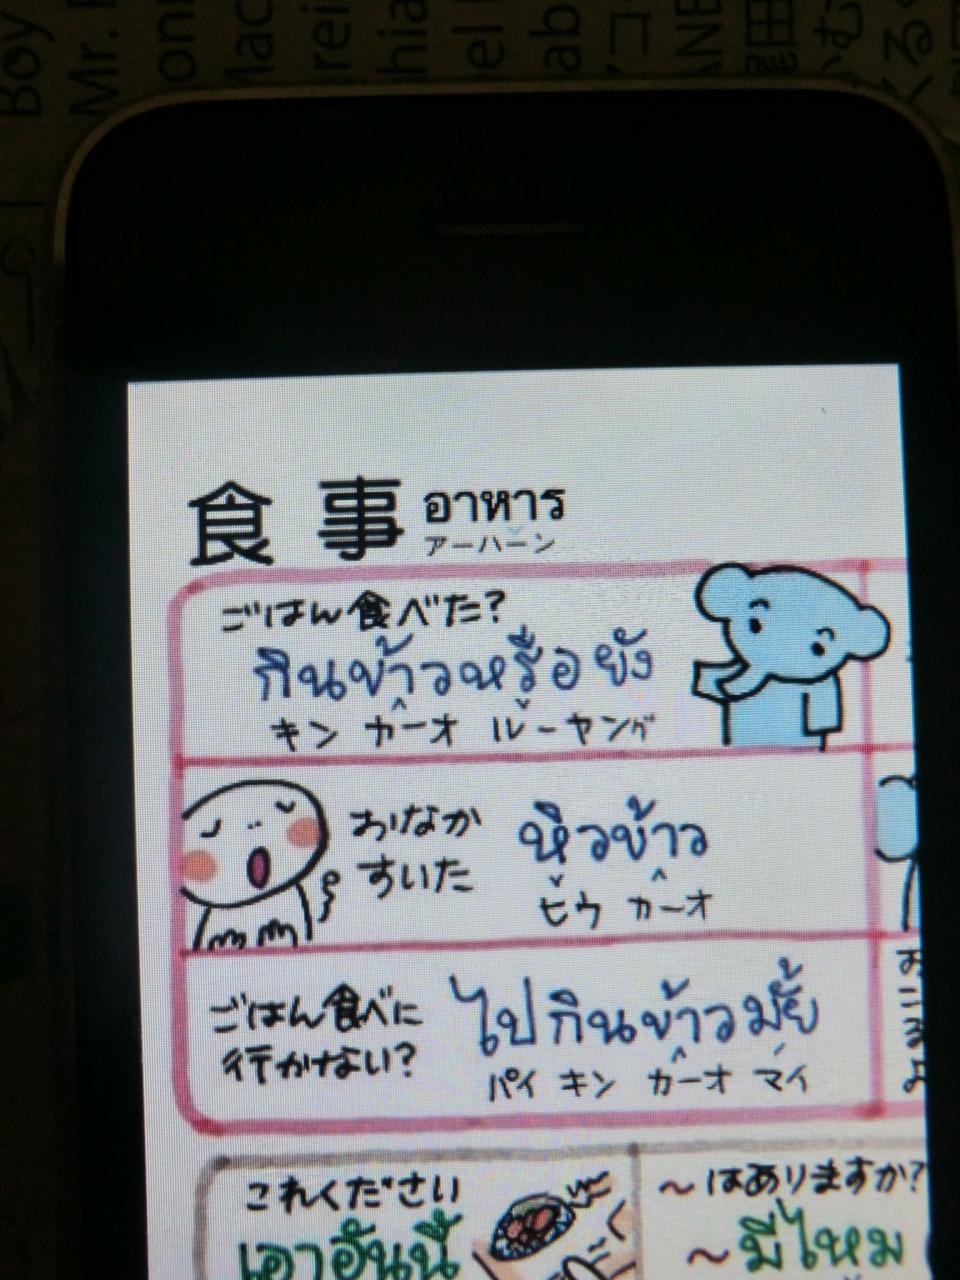 Boy
Mr.
食事 อาหาร
アーハーン
ごはん食べた?
กินข้าวหรือยัง
キン カーオ ルーヤング
おなか
すいた
หิวข้าว
ヒウ カーオ
ごはん食べに
行かない?
ไปกินข้าวมั้ย
パイ キン カーオ マイ
これください
เอาอันนี้
~はありますか?
~มีไหม